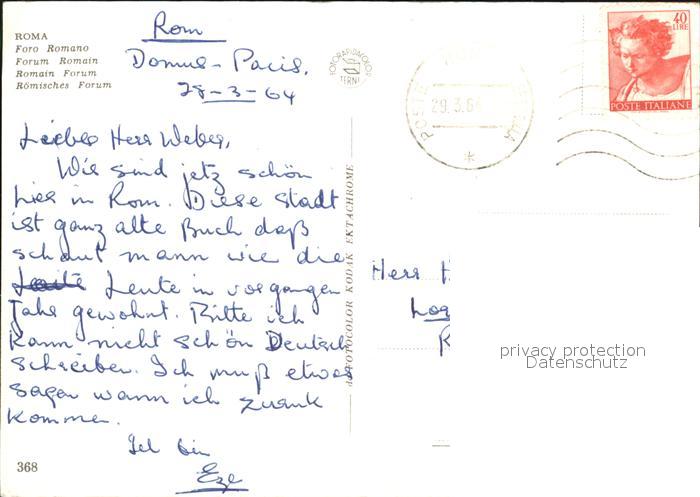 ROMA
Foro Romano
Forum Romain
Romain Forum
Römisches Forum
Rom
Domus-Pacis,
28-3-64
Liebes Herr Weber,
Wir sind jetz schön
hier in Rom. Diese Stadt
ist ganz alte Buch daß
schaut mann wie die
Leute in vorgangen
Jahr gewohnt. Bitte ich
kann nicht schön Deutsch
schreiben. Ich muß etwas
sagen wann ich zurück
komme.
Ich bin
Eze
368
FOTORAPIDACOLOR
TERNI
FOTOCOLOR KODAK EKTACHROME
POSTE
29.3.64
40
LIRE
POSTE ITALIANE
Herr
privacy protection
Datenschutz